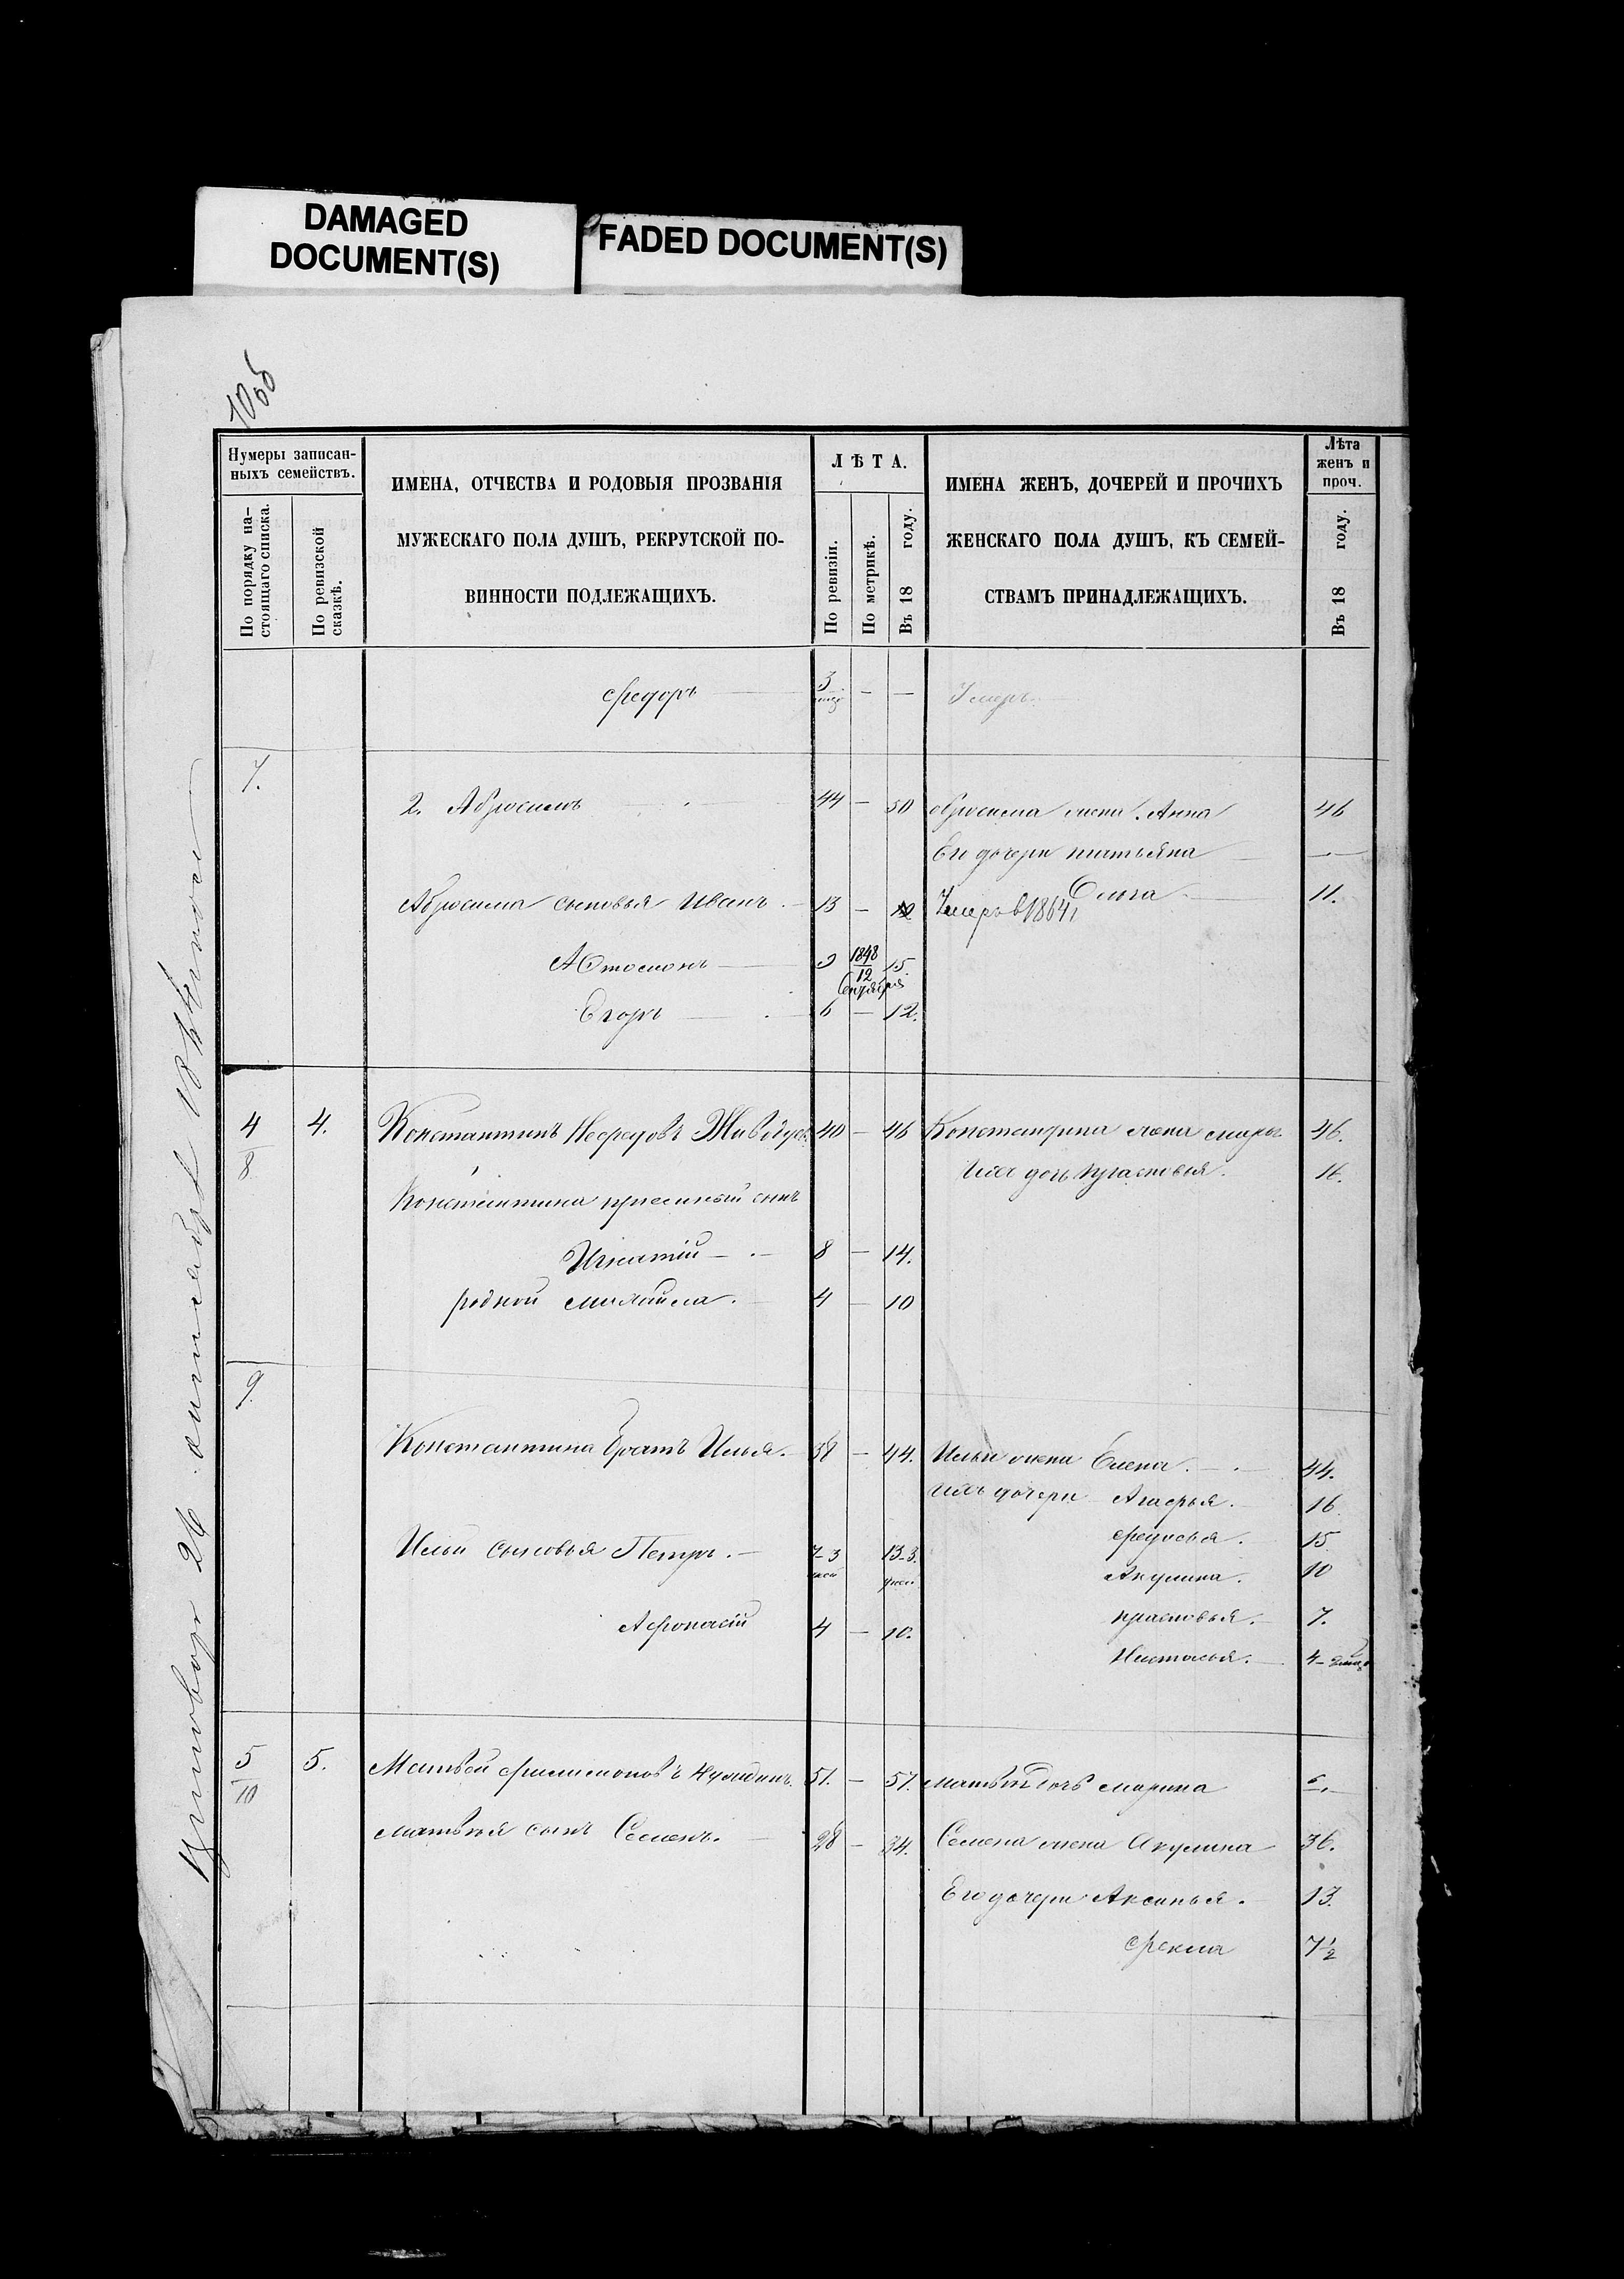 DAMAGED
DOCUMENT(S)
FADED DOCUMENT(S)
10об
Нумеры записан-
ныхъ семействъ.
По порядку на-
стоящаго списка.
По ревизской
сказкѣ.
ИМЕНА, ОТЧЕСТВА И РОДОВЫЯ ПРОЗВАНІЯ
МУЖЕСКАГО ПОЛА ДУШЪ, РЕКРУТСКОЙ ПО-
ВИННОСТИ ПОДЛЕЖАЩИХЪ.
ЛѢТА.
По ревизіи.
По метрикѣ.
Въ 18 году.
ИМЕНА ЖЕНЪ, ДОЧЕРЕЙ И ПРОЧИХЪ
ЖЕНСКАГО ПОЛА ДУШЪ, КЪ СЕМЕЙ-
СТВАМЪ ПРИНАДЛЕЖАЩИХЪ.
Лѣта
женъ и
проч.
Въ 18 году.
Федоръ 3 — — Умеръ
7.
2. Абросимъ 44 — 50 Абросима жена Анна 46
Его дочери татьяна —
Ольга 11.
Абросима сыновья Иванъ 13 — Умеръ в 1864
9 1848 15.
12
Сентября
Егоръ 6 — 12.
4 4. Константинъ 40 — 46 Константина жена 46.
8 дочь 16.
Константина пріемный сынъ
Игнатій 8 — 14.
родной михайла. 4 — 10
9
Константина братъ Илья. 38 — 44. Ильи жена Елена. 44.
ихъ дочери Агафья. 16
Федосья. 15
Ильи сыновья Петръ. 7-3 13-3. Акулина. 10
Афонасій 4 — 10. прасковья. 7.
Настасья. 4
5 5. Матвей филимоновъ 51. — 57. дочь марина
10
матвея сынъ Семенъ. 28 — 34. Семена жена Акулина 36.
Его дочери Аксинья. 13.
фекла 7½
26